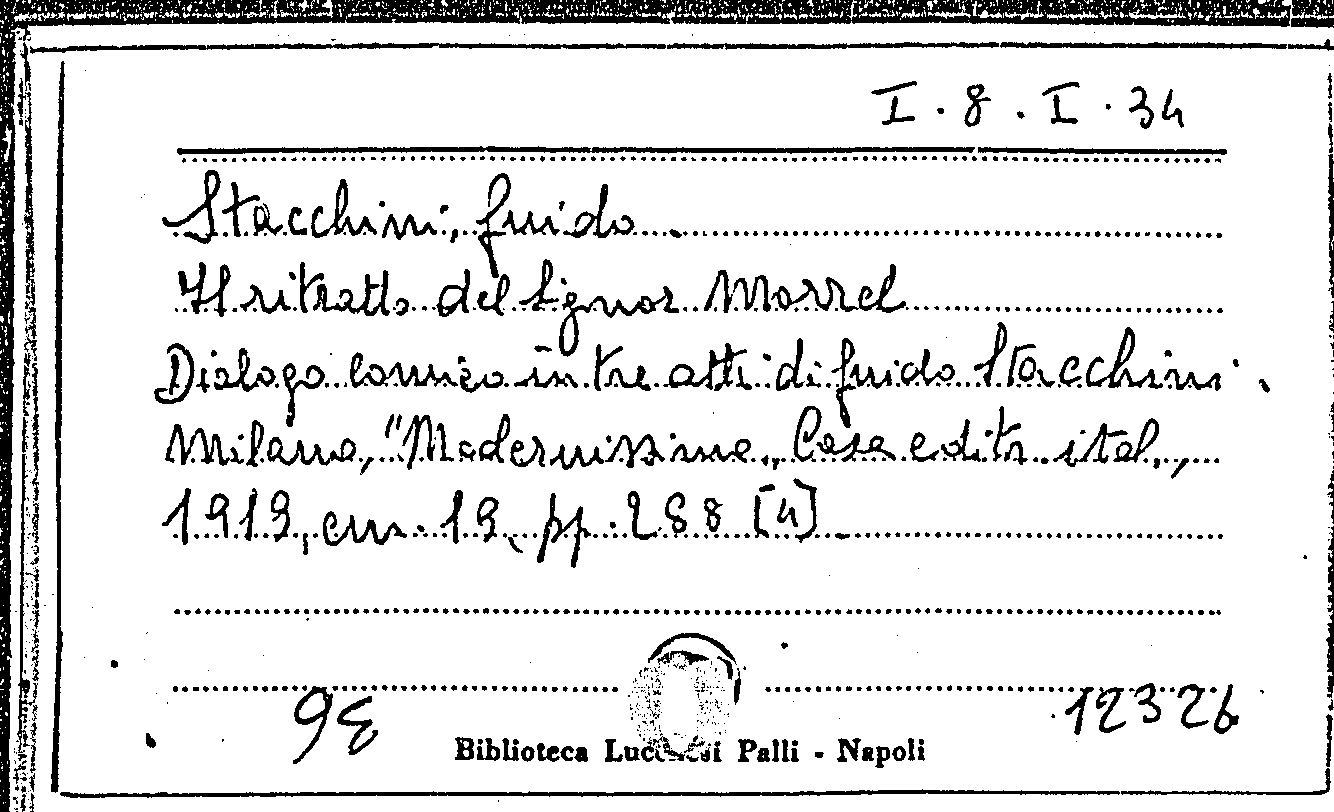 I. 8. I. 34
Stacchini, Guido.
Il ritratto del Signor Morrel
Dialogo comico in tre atti di Guido Stacchini.
Milano, "Modernissima" Casa edit. ital.,
1919, cm. 19, pp. 288 [4].
12326
Biblioteca Lucchesi Palli - Napoli